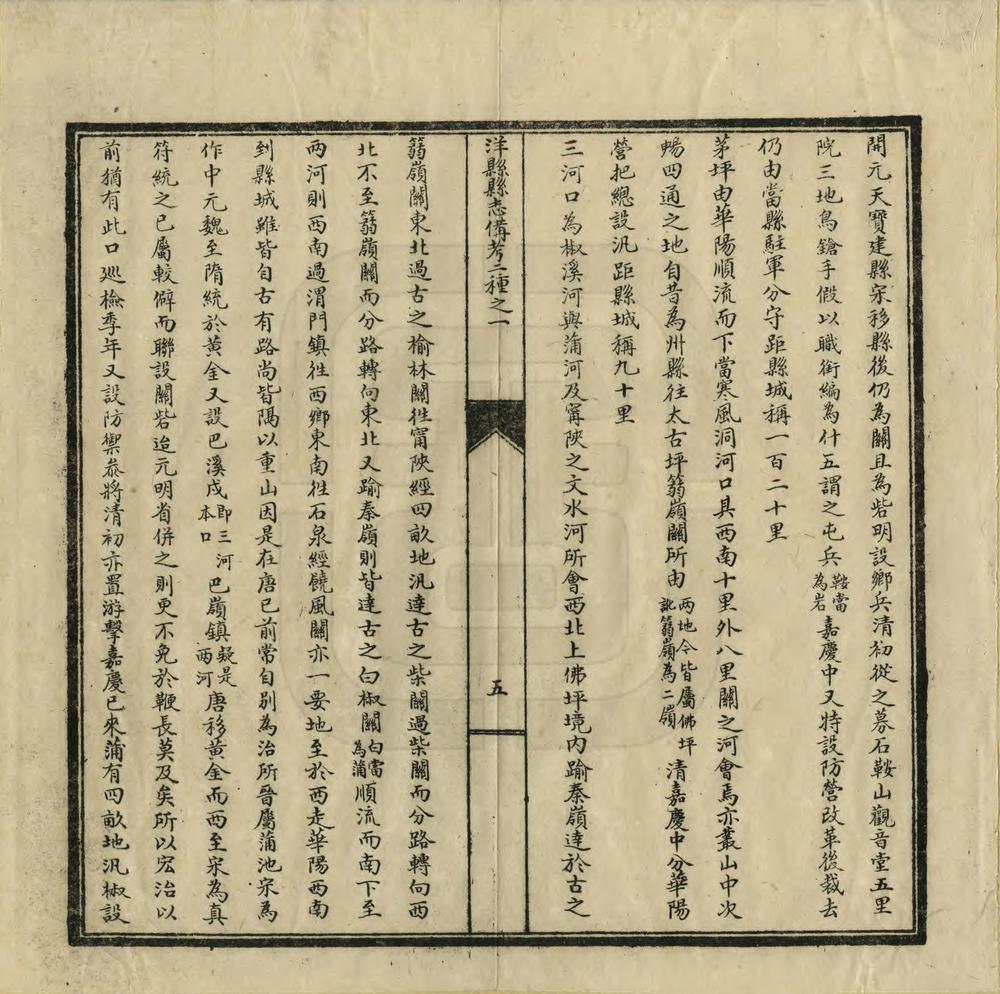 開元天寶建縣宋移縣後仍為關且為砦明設鄉兵清初從之募石鞍山觀音堂五里
院三地鳥鎗手假以職銜編為什五謂之屯兵鞍當為岩嘉慶中又特設防營改革後裁去
仍由當縣駐軍分守距縣城稱一百二十里
茅坪由華陽順流而下當寒風洞河口具西南十里外八里關之河會焉亦叢山中次
暢四通之地自昔為州縣往太古坪蒻嶺關所由兩地今皆屬佛坪訛蒻嶺為二嶺清嘉慶中分華陽
營把總設汛距縣城稱九十里
三河口為椒溪河與蒲河及寗陝之文水河所會西北上佛坪境內踰秦嶺達於古之
洋縣縣志備考二種之一
五
蒻嶺關東北過古之榆林關徃寗陝經四畝地汛達古之柴關過柴關而分路轉向西
北不至蒻嶺關而分路轉向東北又踰秦嶺則皆達古之白椒關白當為蒲順流而南下至
兩河則西南過渭門鎮徃西鄉東南徃石泉經饒風關亦一要地至於西走華陽西南
到縣城雖皆自古有路尚皆隔以重山因是在唐已前常自別為治所晉屬蒲池宋為
作中元魏至隋統於黃金又設巴溪戍即三河本口巴嶺鎮疑是兩河唐移黃金而西至宋為真
符統之已屬較僻而聯設關砦迨元明省併之則更不免於鞭長莫及矣所以宏治以
前猶有此口廵檢季年又設防禦叅將清初亦置游擊嘉慶已來蒲有四畝地汛椒設